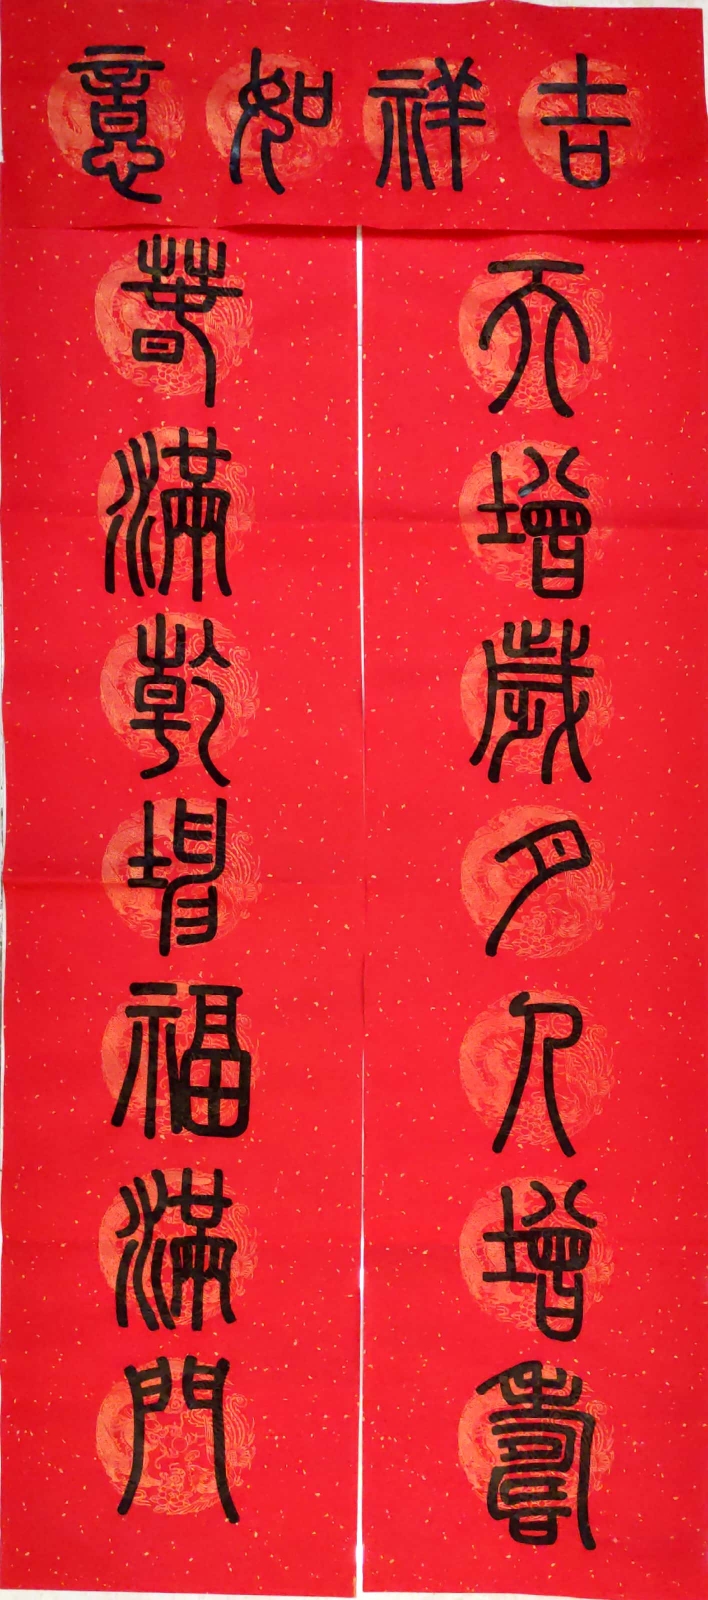 吉祥如意
天增歲月人增壽
春滿乾坤福滿門